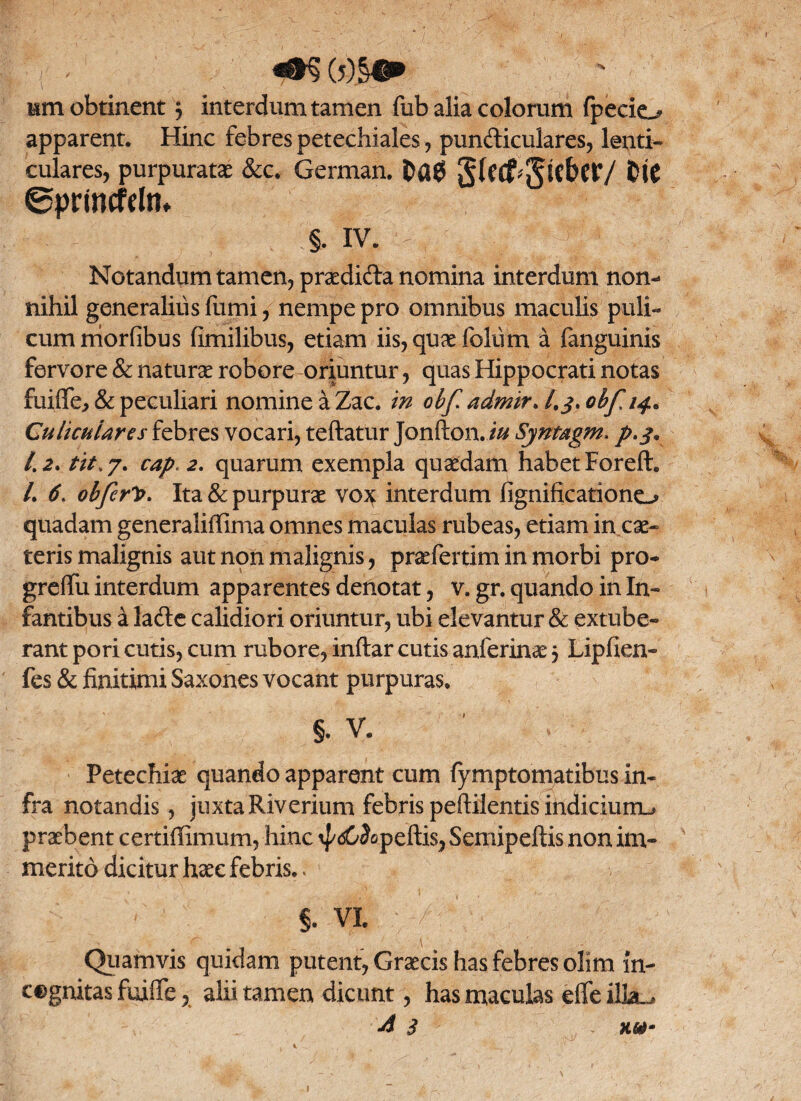 (5)
um obtinent ; interdum tamen ſub alia colorum ſpecie
apparent. Hinc febres petechiales, puncticulares, lenti-
culares, purpuratæ &c. German. das Fleck-Fieber/ die
Sprinckeln.
§. IV.
Notandum tamen, prædicta nomina interdum non-
nihil generaliùs ſumi, nempe pro omnibus maculis puli-
cum morſibus ſimilibus, etiam iis, quæ ſolùm à ſanguinis
fervore & naturæ robore oriuntur, quas Hippocrati notas
fuiſſe, & peculiari nomine à Zac. in obſ. admir. l.3. obſ. 14.
Culiculares febres vocari, teſtatur Jonſton. iu Syntagm. p.3.
l. 2. tit. 7. cap. 2. quarum exempla quædam habet Foreſt.
l. 6. obſerv. Ita & purpuræ vox interdum ſignificatione
quadam generaliſſima omnes maculas rubeas, etiam in cæ-
teris malignis aut non malignis, præſertim in morbi pro-
greſſu interdum apparentes denotat, v. gr. quando in In-
fantibus à lacte calidiori oriuntur, ubi elevantur & extube-
rant pori cutis, cum rubore, inſtar cutis anſerinæ ; Lipſien-
ſes & finitimi Saxones vocant purpuras.
§. V.
Petechiæ quando apparent cum ſymptomatibus in-
fra notandis, juxta Riverium febris peſtilentis indicium
præbent certiſſimum, hinc ψευδοpeſtis, Semipeſtis non im-
meritò dicitur hæc febris.
§. VI.
Quamvis quidam putent, Græcis has febres olim in-
cognitas fuiſſe, alii tamen dicunt, has maculas eſſe illa
A 3 κω-